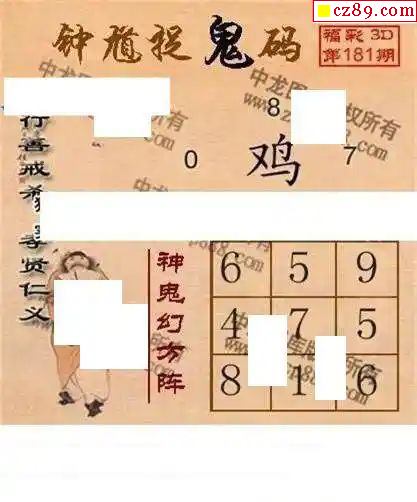 cz89.com
钟馗捉鬼码
福彩3D
第181期
8
0 鸡 7
行善戒杀 孝贤仁义
神鬼幻方阵
6 5 9
4 7 5
8 1 6